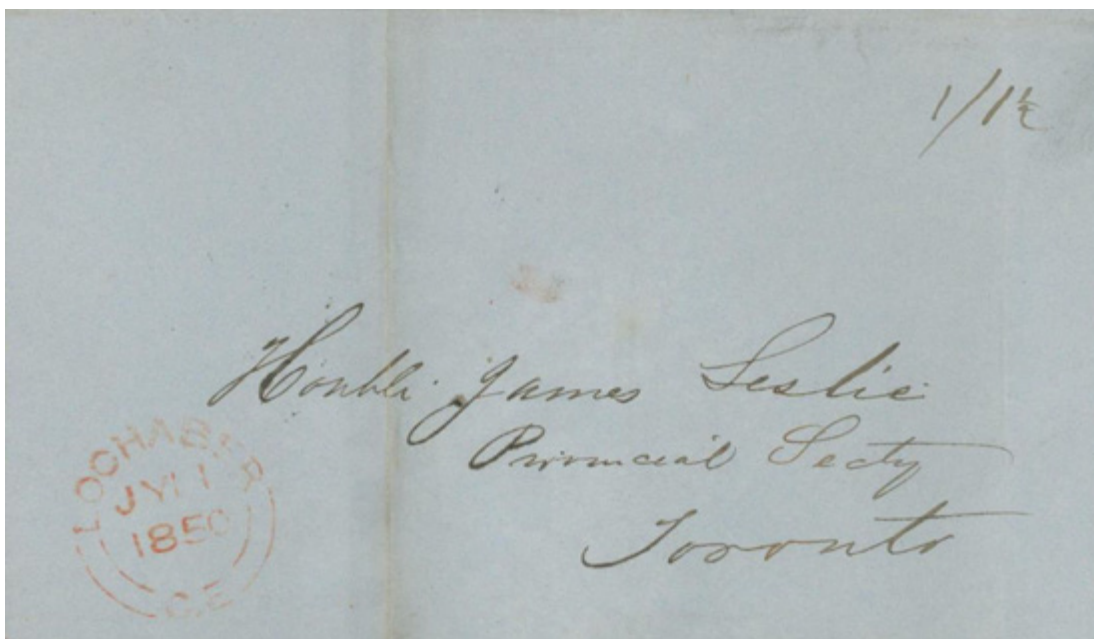 1/1½
Honble. James Leslie
Provincial Secty
Toronto
LOCHABER
JY 1
1850
C.E